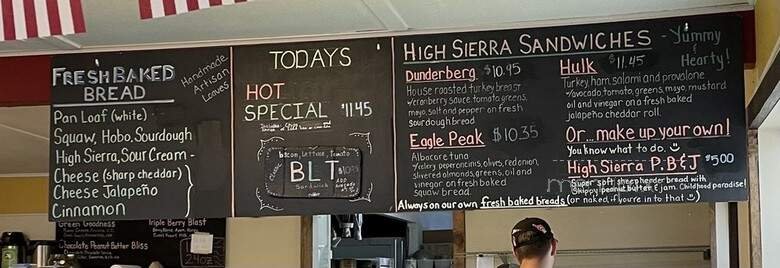 FRESH BAKED
BREAD
Handmade
Artisan
Loaves
Pan Loaf (white)
Squaw, Hobo, Sourdough
High Sierra, Sour Cream
Cheese (sharp cheddar)
Cheese Jalapeño
Cinnamon
TODAYS
HOT
SPECIAL $11.45
bacon, Lettuce, Tomato
BLT
Sandwich
HIGH SIERRA SANDWICHES
-Yummy
& Hearty!
Dunderberg $10.95
House roasted turkey breast
w/cranberry sauce, tomato, greens,
mayo, salt and pepper on fresh
sourdough bread
Eagle Peak $10.35
Albacore tuna
w/celery, peperoncinis, olives, red onion,
slivered almonds, greens, oil and
vinegar on fresh baked
squaw bread
Hulk $11.45
Turkey, ham, salami and provolone
w/avocado, tomato, greens, mayo, mustard
oil and vinegar on a fresh baked
jalapeño cheddar roll.
Or...make up your own!
You know what to do.
High Sierra P.B & J $5.00
Super soft sheepherder bread with
Skippy peanut butter & jam. Childhood paradise!
Always on our own fresh baked breads (or naked, if you're in to that)
Green Goodness
Triple Berry Blast
Chocolate Peanut Butter Bliss
24oz